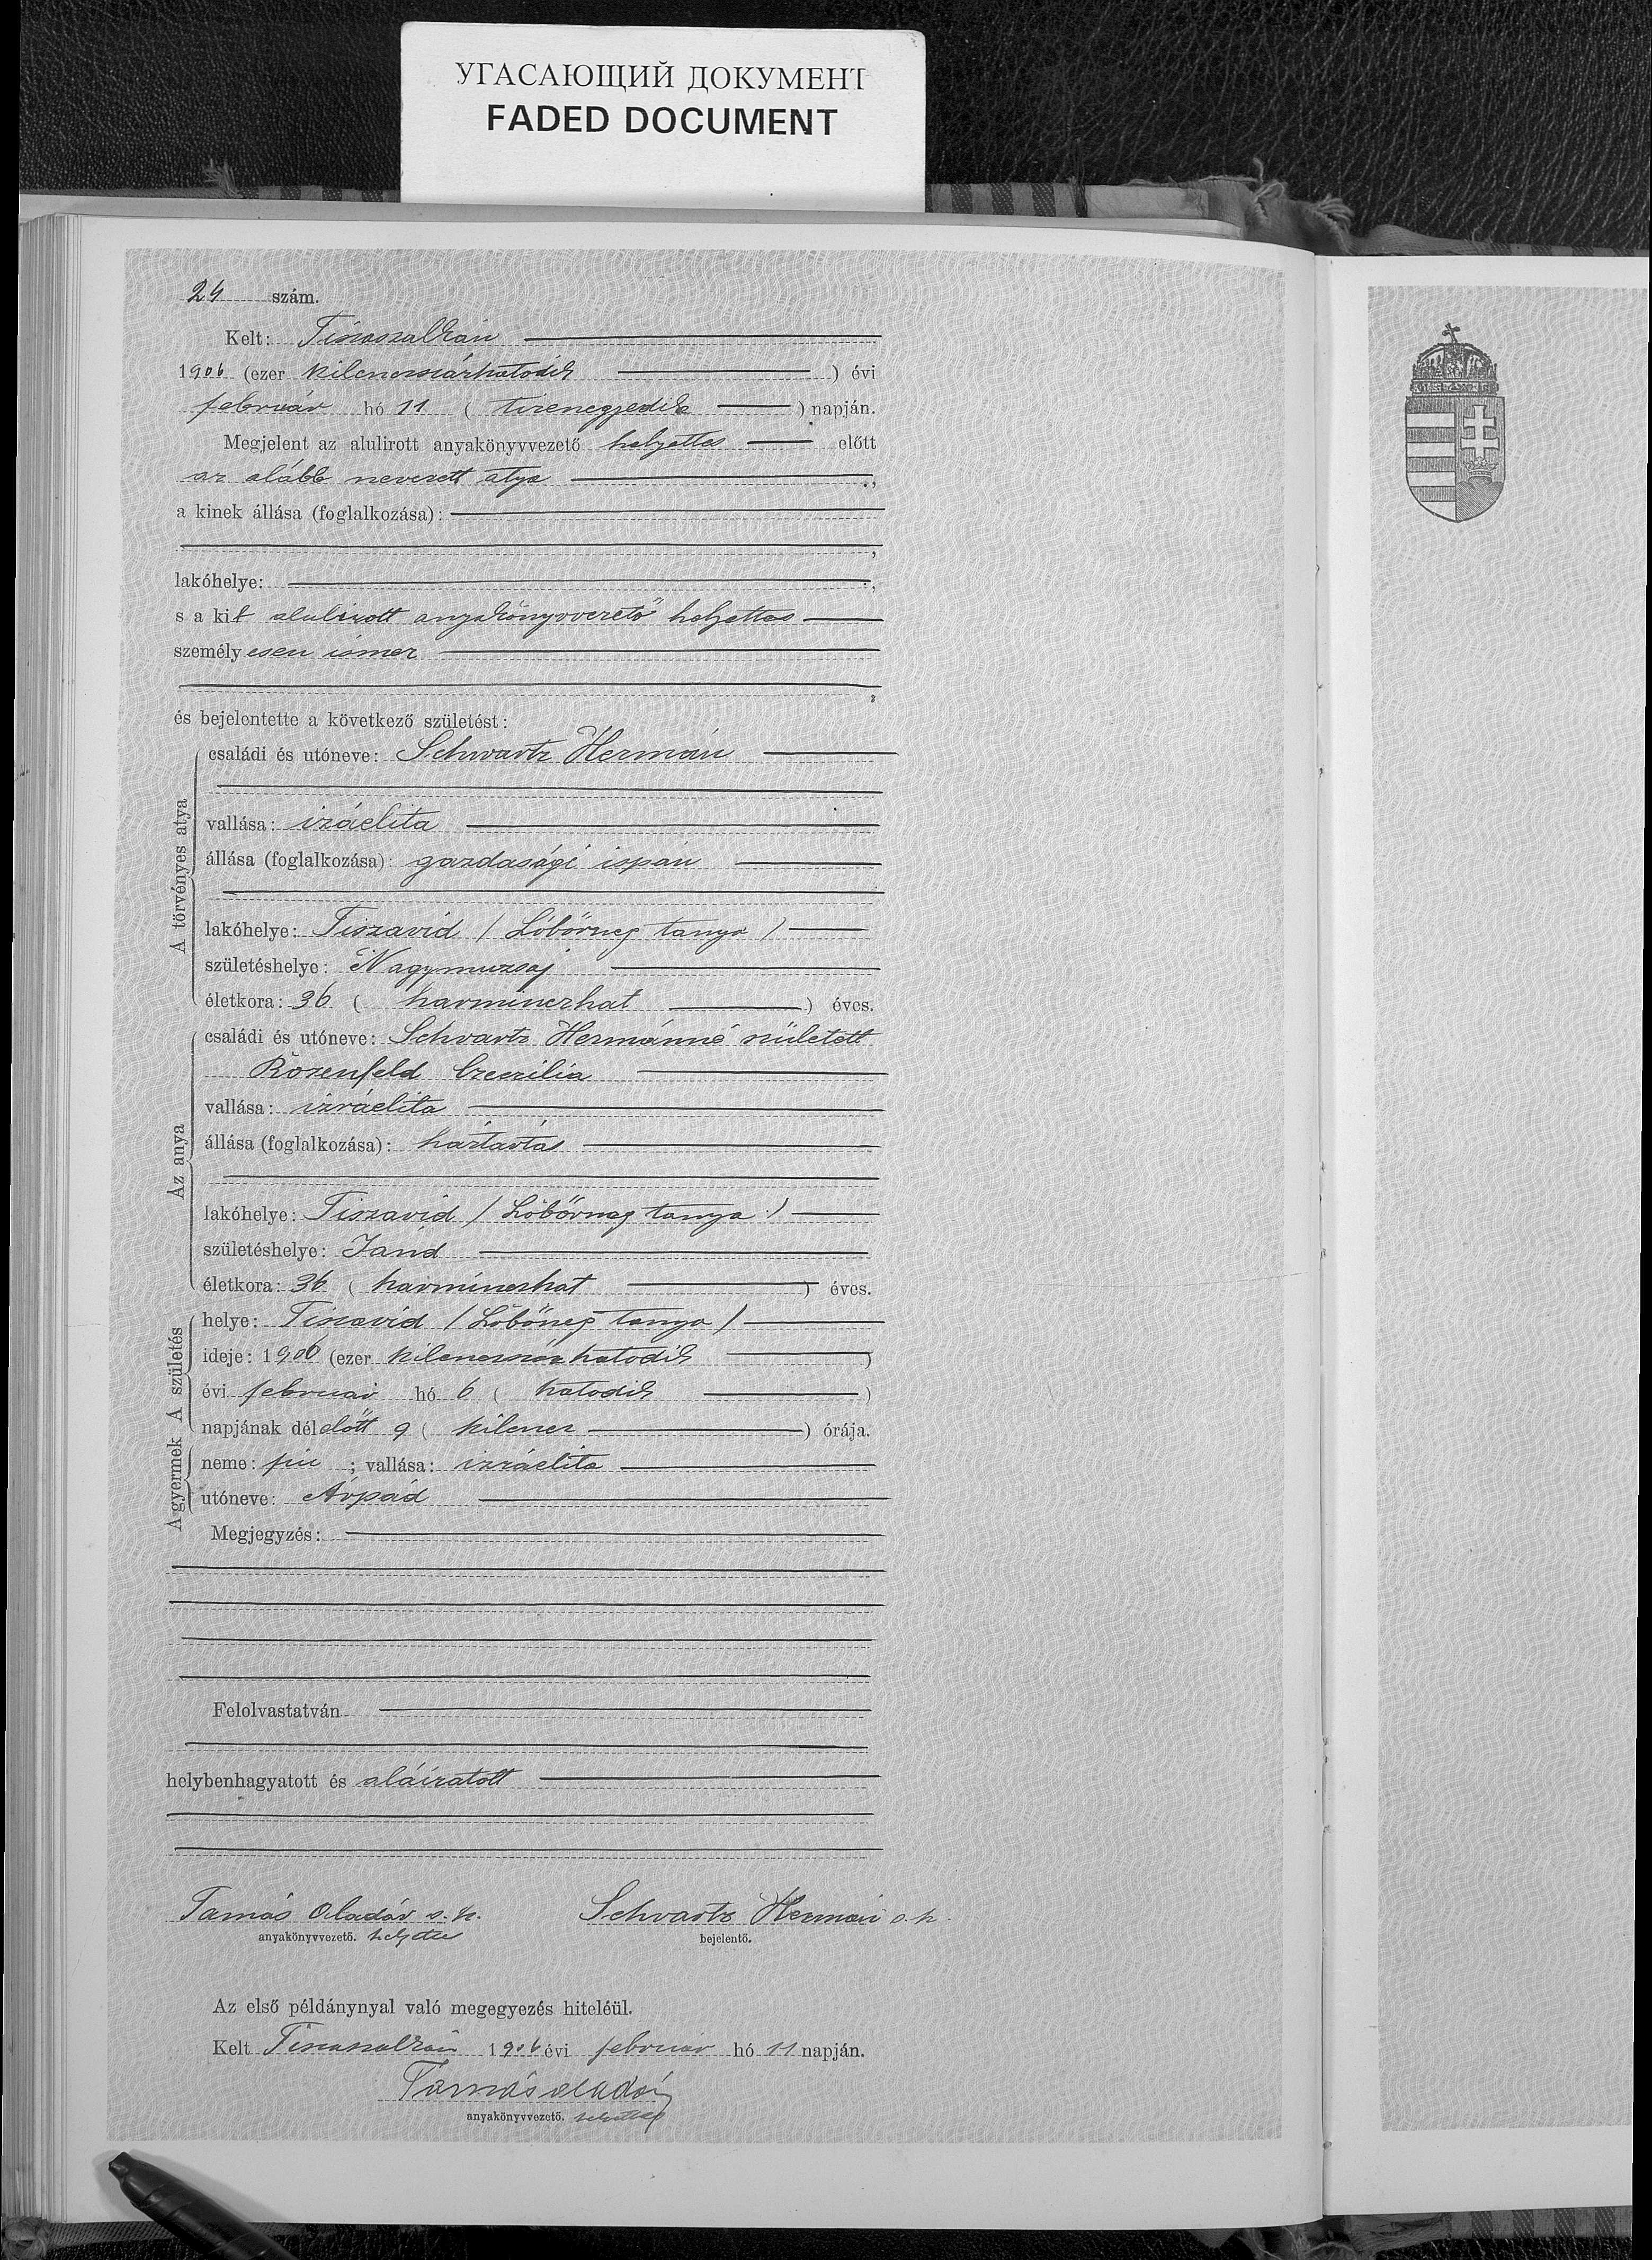 УГАСАЮЩИЙ ДОКУМЕНТ
FADED DOCUMENT
24 szám.
Kelt: Tiszaszalkán
1906 (ezer kilenczszázhatodik ) évi
február hó 11 ( tizenegyedik ) napján.
Megjelent az alulirott anyakönyvvezető helyettes előtt
az alább nevezett atya ,
a kinek állása (foglalkozása):
,
lakóhelye: ,
s a kit alulirott anyakönyvvezető helyettes
személyesen ismer
,
és bejelentette a következő születést:
A törvényes atya
családi és utóneve: Schwartz Hermán
vallása: izráelita
állása (foglalkozása): gazdasági ispán
lakóhelye: Tiszavid ( Lóbőrneg tanya )
születéshelye: Nagymuzsaj
életkora: 36 ( harminczhat ) éves.
Az anya
családi és utóneve: Schvartz Hermánné született
Rozenfeld Czeczilia
vallása: izráelita
állása (foglalkozása): háztartás
lakóhelye: Tiszavid ( tanya )
születéshelye: Jánd
életkora: 36 ( harminczhat ) éves.
A születés
helye: Tiszavid ( tanya )
ideje: 1906 (ezer kilenczszázhatodik )
évi február hó 6 ( hatodik )
napjának délelőtt 9 ( kilencz ) órája.
A gyermek
neme: fiu ; vallása: izráelita
utóneve: Árpád
Megjegyzés:
Felolvastatván
helybenhagyatott és aláiratott
Tamás Aladár s. k. Schvartz Hermán s. k.
anyakönyvvezető. helyettes bejelentő.
Az első példánynyal való megegyezés hiteléül.
Kelt Tiszaszalkán 1906 évi február hó 11 napján.
Tamás Aladár
anyakönyvvezető. helyettes